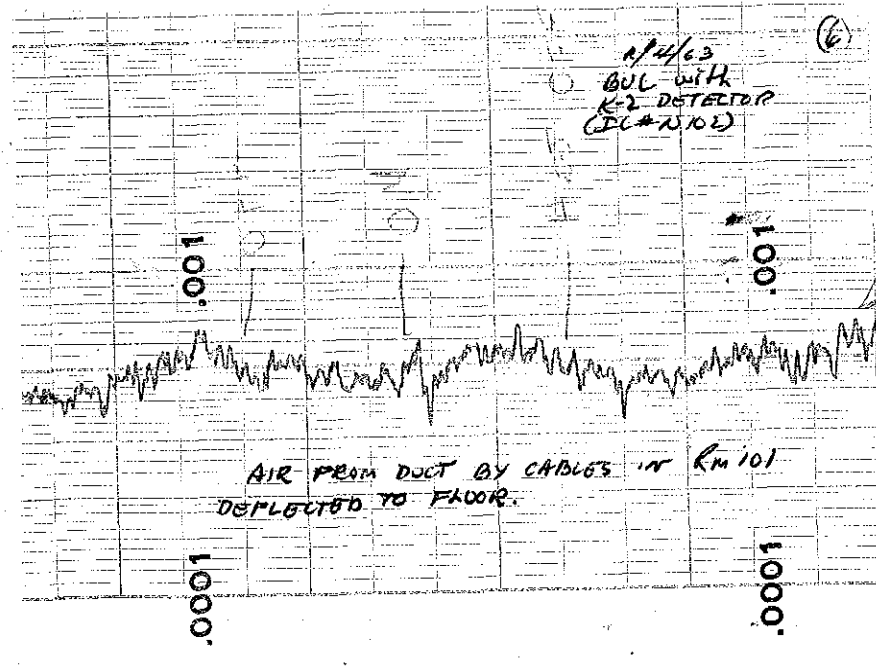 6
/4/63
BUC with
K-2 DETECTOR
.001
.001
AIR FROM DUCT BY CABLES IN Rm 101
DEFLECTED TO FLOOR.
.0001
.0001